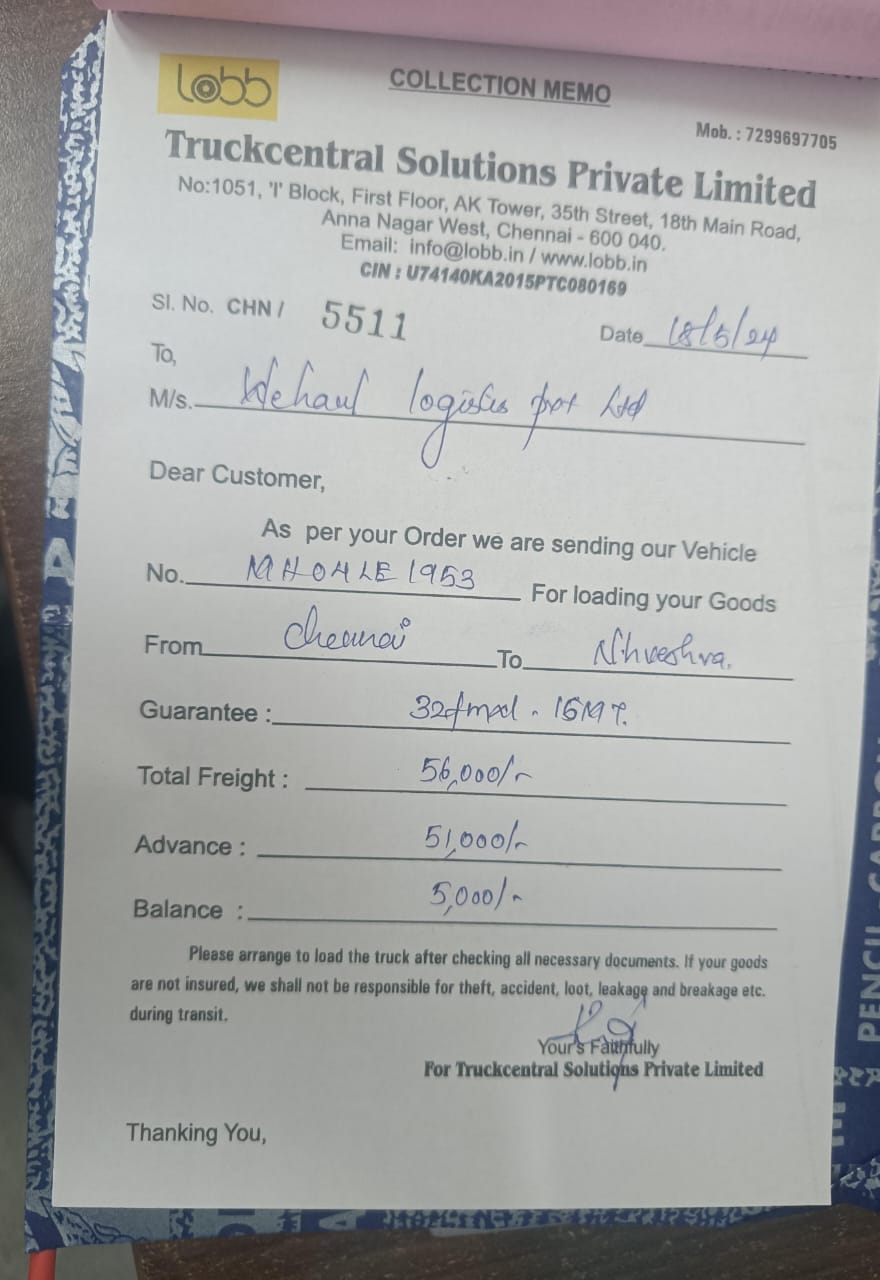 lobb
COLLECTION MEMO
Mob. : 7299697705
Truckcentral Solutions Private Limited
No:1051, 'I' Block, First Floor, AK Tower, 35th Street, 18th Main Road,
Anna Nagar West, Chennai - 600 040.
Email: info@lobb.in / www.lobb.in
CIN : U74140KA2015PTC080169
Sl. No. CHN / 5511
Date 18/5/24
To,
M/s. Wehaul logistics pvt ltd
Dear Customer,
As per your Order we are sending our Vehicle
No. MH04LE1953 For loading your Goods
From Chennai To Nhveshva.
Guarantee : 32f mxl . 15MT.
Total Freight : 56,000/-
Advance : 51,000/-
Balance : 5,000/-
Please arrange to load the truck after checking all necessary documents. If your goods
are not insured, we shall not be responsible for theft, accident, loot, leakage and breakage etc.
during transit.
Your's Faithfully
For Truckcentral Solutions Private Limited
Thanking You,